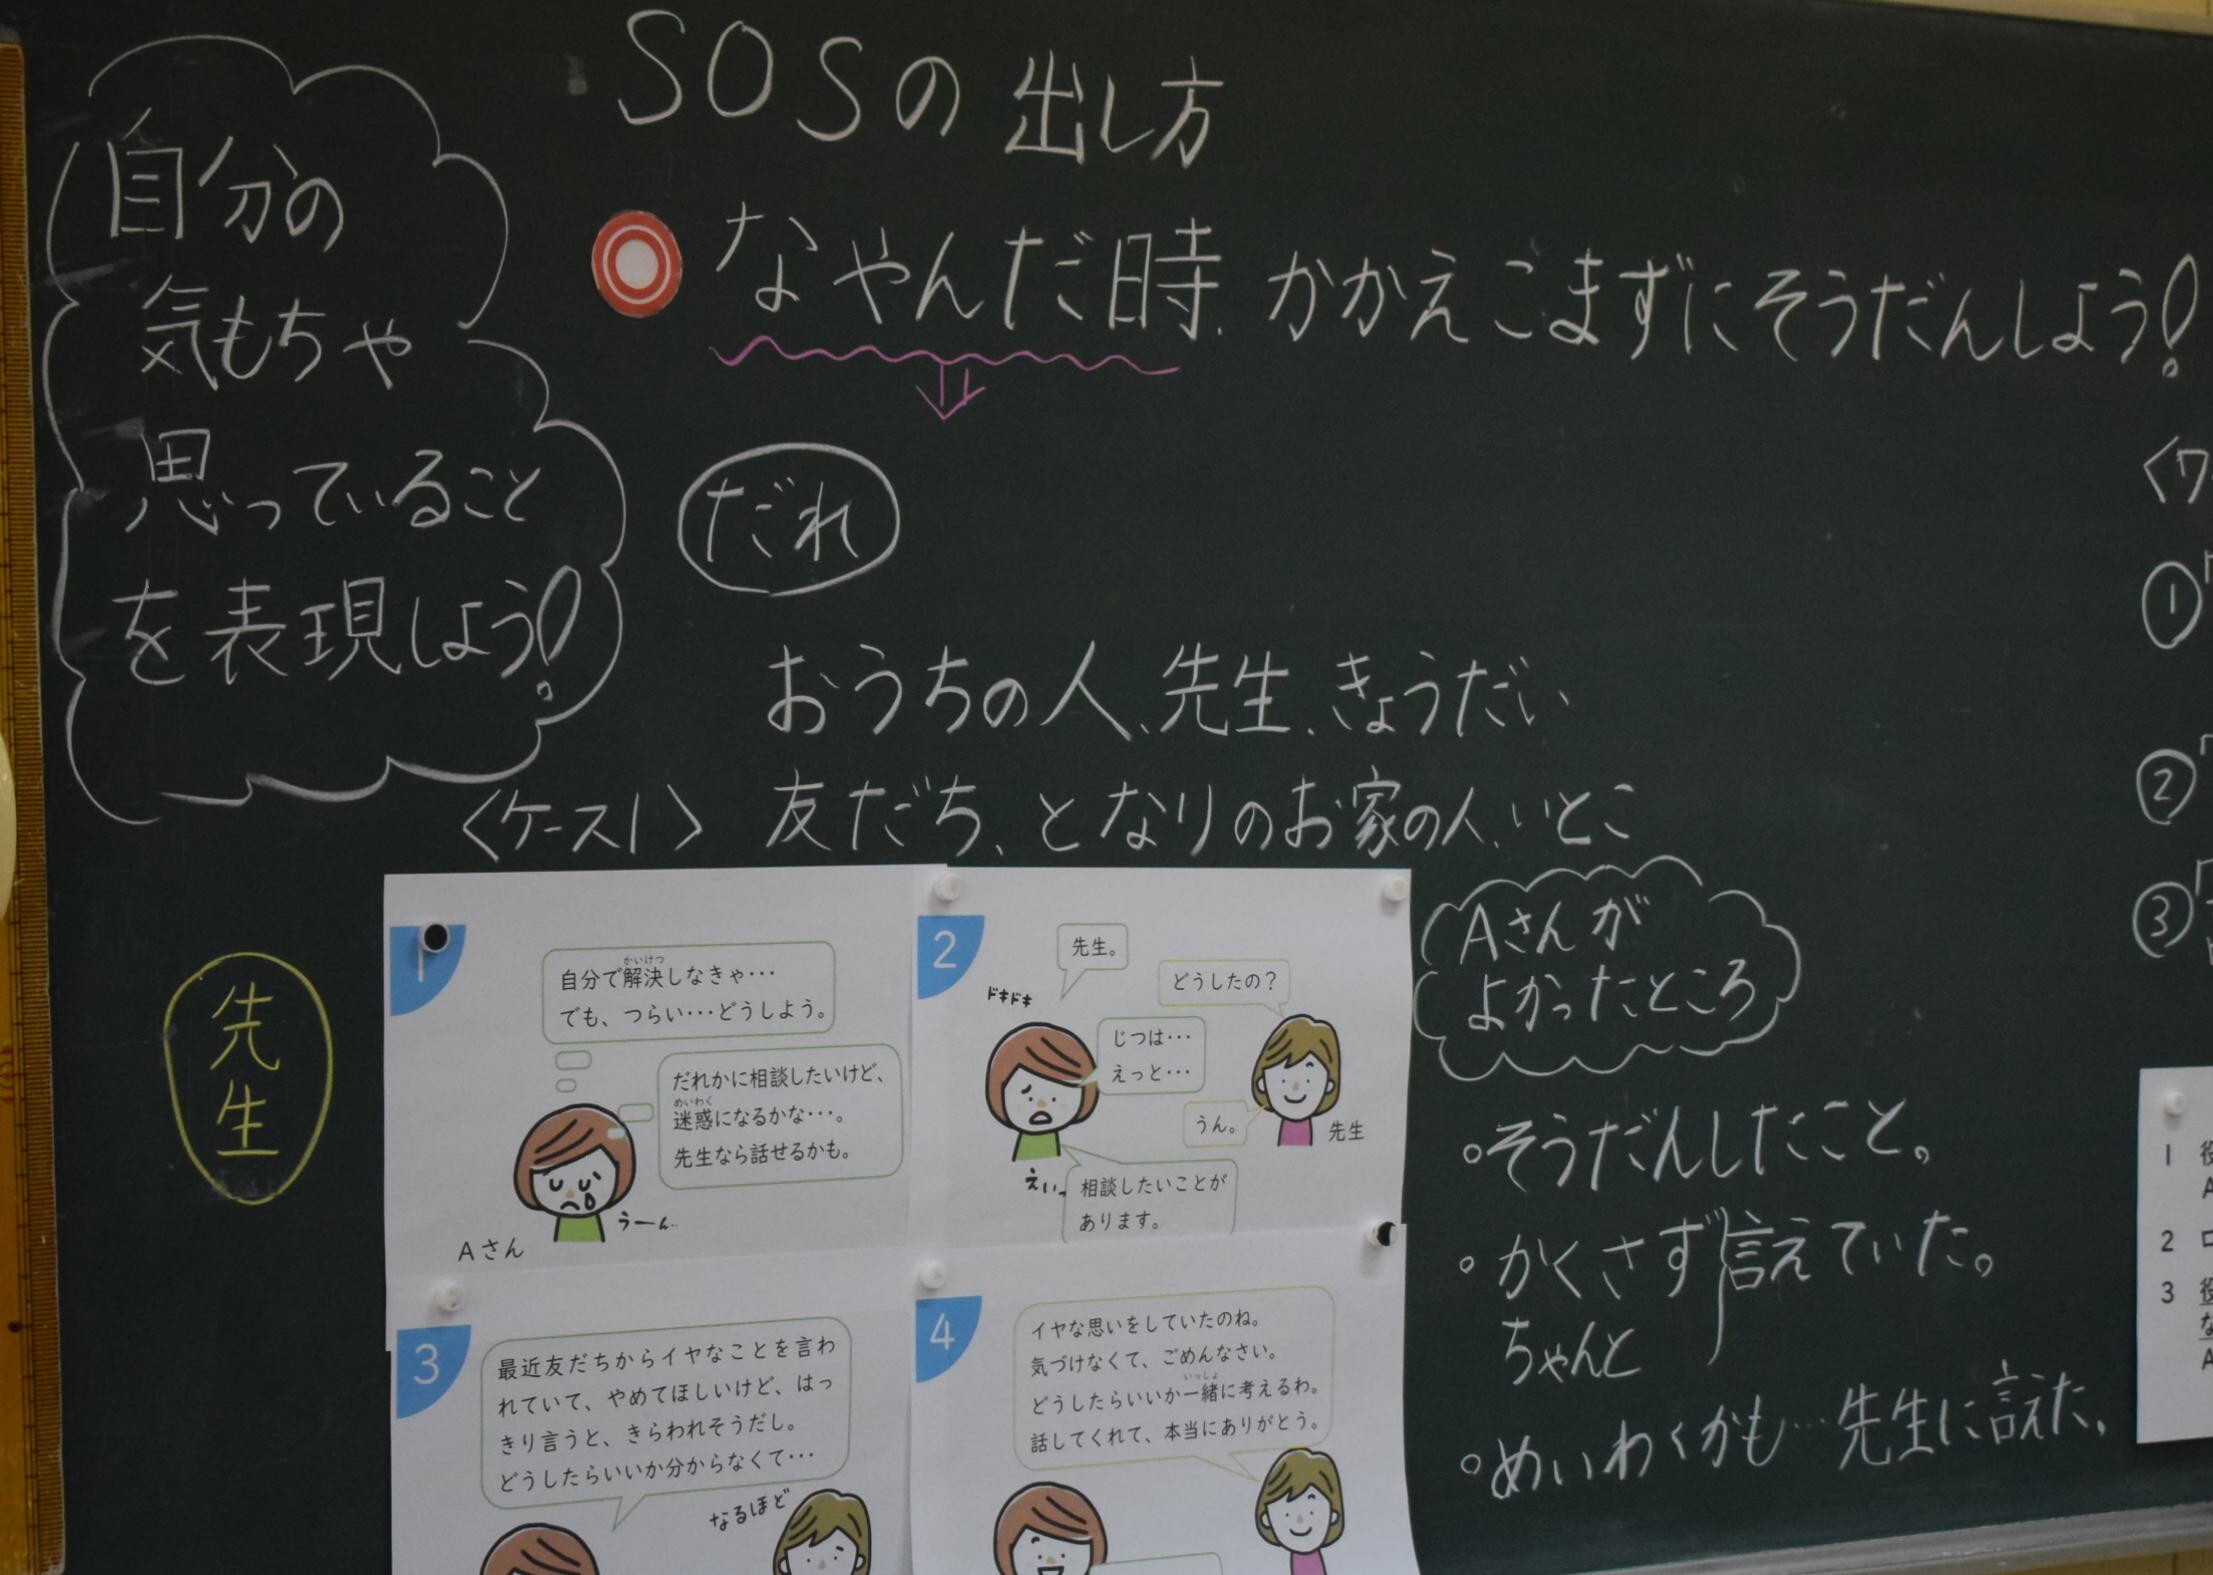 SOSの出し方
自分の
気もちや
思っていること
を表現しよう!
なやんだ時、かかえこまずにそうだんしよう!
だれ
おうちの人、先生、きょうだい
友だち、となりのお家の人、いとこ
〈ケース1〉
先生
1
自分で解決しなきゃ…
かいけつ
でも、つらい…どうしよう。
だれかに相談したいけど、
めいわく
迷惑になるかな…。
先生なら話せるかも。
うーん…
Aさん
2
先生。
ドキドキ
どうしたの?
じつは…
えっと…
うん。
先生
えいっ
相談したいことが
あります。
3
最近友だちからイヤなことを言わ
れていて、やめてほしいけど、はっ
きり言うと、きらわれそうだし。
どうしたらいいか分からなくて…
なるほど
4
イヤな思いをしていたのね。
気づけなくて、ごめんなさい。
いっしょ
どうしたらいいか一緒に考えるわ。
話してくれて、本当にありがとう。
Aさんが
よかったところ
・そうだんしたこと。
・かくさず言えていた。
ちゃんと
・めいわくかも…先生に言えた。
〈ワ
①
②
③
1
A
2
3
な
A